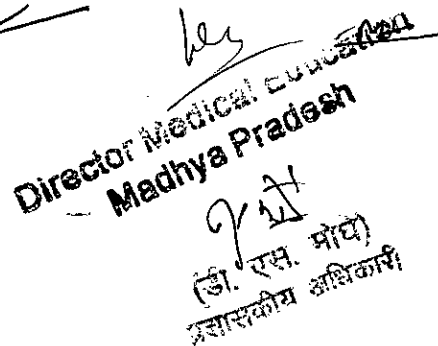 Director Medical Education
Madhya Pradesh
(डी. एस. मोघे)
प्रशासकीय अधिकारी